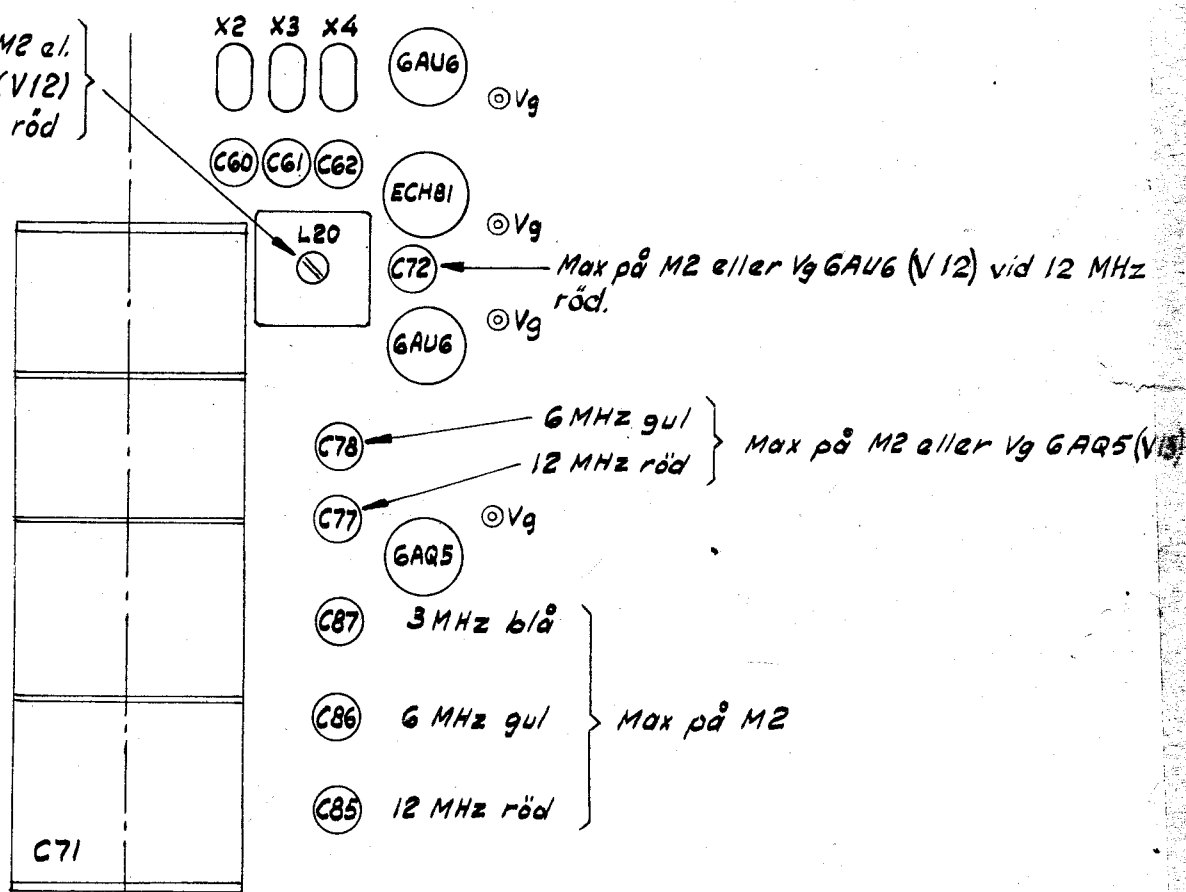 X2 X3 X4
M2 el.
(V12)
röd
6AU6
Vg
C60 C61 C62
ECH81
Vg
L20
C72
Max på M2 eller Vg 6AU6 (V12) vid 12 MHz
röd.
Vg
6AU6
C78
6 MHz gul
12 MHz röd
Max på M2 eller Vg 6AQ5
C77
Vg
6AQ5
C87 3 MHz blå
C86 6 MHz gul
Max på M2
C85 12 MHz röd
C71